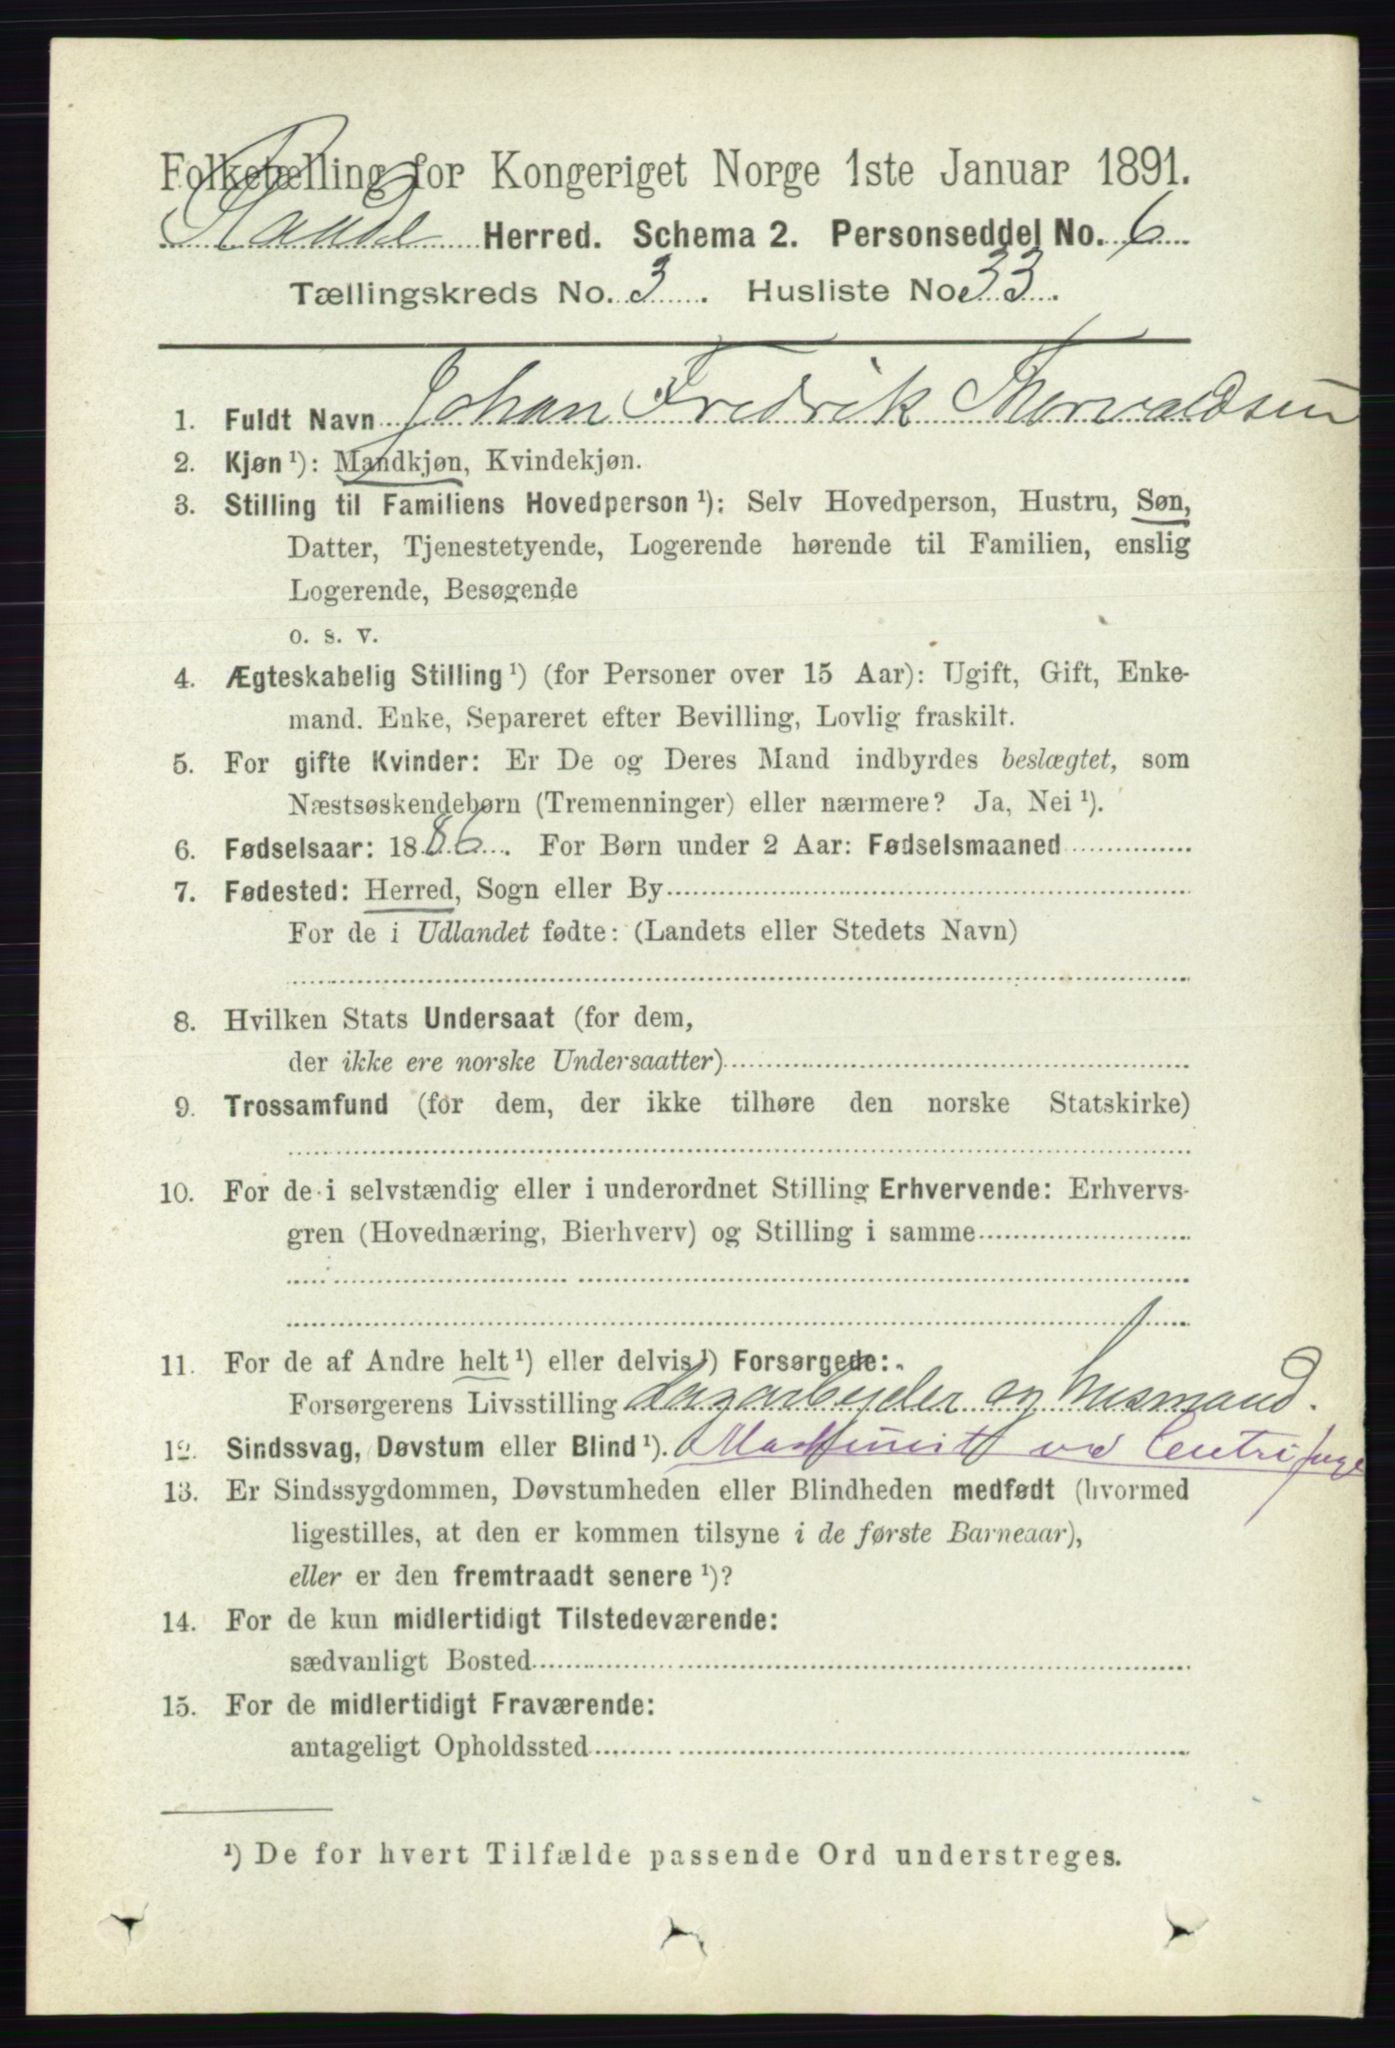 Folketælling for Kongeriget Norge 1ste Januar 1891.
Raade Herred. Schema 2. Personseddel No. 6
Tællingskreds No. 3. Husliste No. 33.
1. Fuldt Navn Johan Fredrik Thorvaldsen
2. Kjøn ¹): Mandkjøn, Kvindekjøn.
3. Stilling til Familiens Hovedperson ¹): Selv Hovedperson, Hustru, Søn,
Datter, Tjenestetyende, Logerende hørende til Familien, enslig
Logerende, Besøgende
o. s. v.
4. Ægteskabelig Stilling ¹) (for Personer over 15 Aar): Ugift, Gift, Enke-
mand. Enke, Separeret efter Bevilling, Lovlig fraskilt.
5. For gifte Kvinder: Er De og Deres Mand indbyrdes beslægtet, som
Næstsøskendebørn (Tremenninger) eller nærmere? Ja, Nei ¹).
6. Fødselsaar: 1886. For Børn under 2 Aar: Fødselsmaaned
7. Fødested: Herred, Sogn eller By
For de i Udlandet fødte: (Landets eller Stedets Navn)
8. Hvilken Stats Undersaat (for dem,
der ikke ere norske Undersaatter)
9. Trossamfund (for dem, der ikke tilhøre den norske Statskirke)
10. For de i selvstændig eller i underordnet Stilling Erhvervende: Erhvervs-
gren (Hovednæring, Bierhverv) og Stilling i samme
11. For de af Andre helt ¹) eller delvis ¹) Forsørgede:
Forsørgerens Livsstilling og husmand.
12. Sindssvag, Døvstum eller Blind ¹). Maskinist ved Centrifuge
13. Er Sindssygdommen, Døvstumheden eller Blindheden medfødt (hvormed
ligestilles, at den er kommen tilsyne i de første Barneaar),
eller er den fremtraadt senere ¹)?
14. For de kun midlertidigt Tilstedeværende:
sædvanligt Bosted
15. For de midlertidigt Fraværende:
antageligt Opholdssted
¹) De for hvert Tilfælde passende Ord understreges.